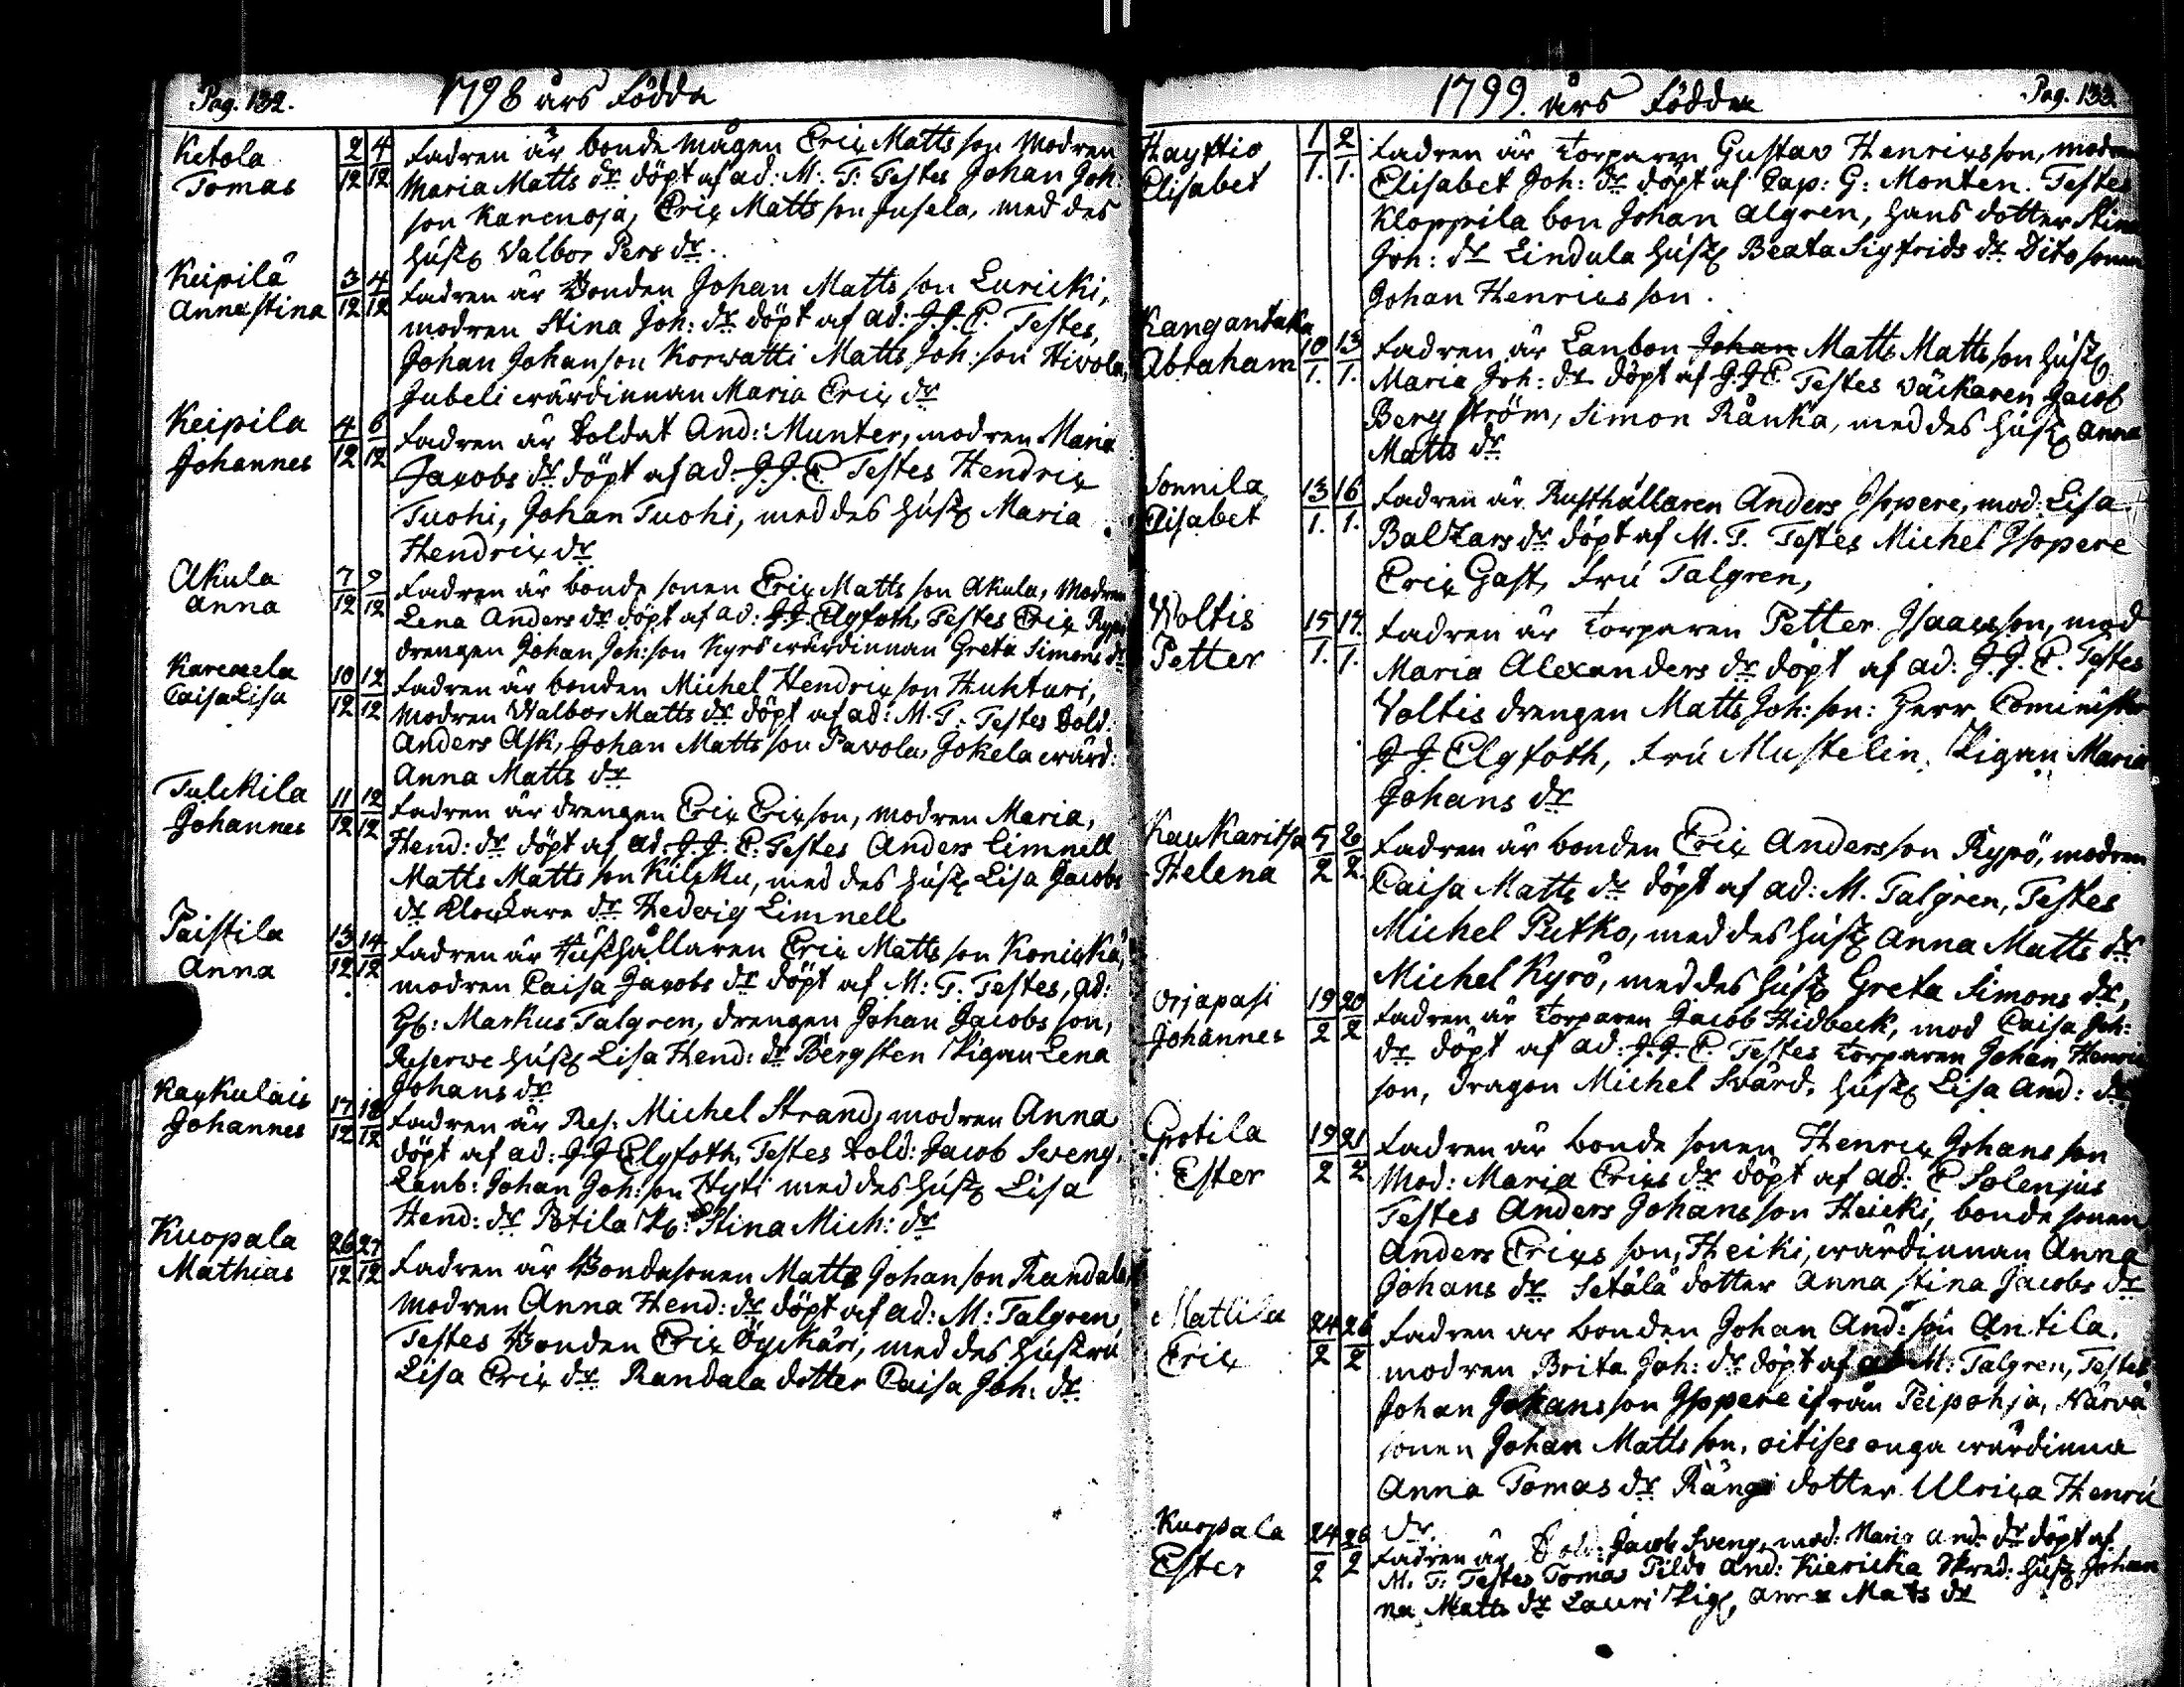 Pag. 132.
1798 års Födda
Ketola 2/12 4/12 Fadren är bonde mågen Eric Matts son Modren
Tomas Maria Matts dr döpt af ad: M: T: Testes Johan Joh:
son Karenoja, Eric Matts son Jusela, med des
hust Valbor Pers dr.
Keipilä 3/12 4/12 Fadren är Bonden Johan Matts son Luricki,
Anna Stina modren Stina Joh: dr döpt af ad: J. J. E. Testes,
Johan Johan son Korwatti Matts Joh: son Hivola,
Jubeli wärdinnan Maria Eric dr
Keipila 4/12 6/12 Fadren är Soldat And: Munter, modren Maria
Johannes Jacobs dr döpt af ad. J. J. E. Testes Hendric
Tuohi, Johan Tuohi, med des hust Maria
Hendric dr
Akula 7/12 9/12 Fadren är bonde sonen Eric Matts son Akula, Modren
Anna Lena Anders dr döpt af ad: J. J. Elgfoth, Testes Eric
drengen Johan Joh: son Kyrö wärdinnan Greta Simons dr
10/12 12/12 Fadren är bonden Michel Hendric son Huhturi,
Caisa Lisa Modren Walbor Matts dr döpt af ad: M. T. Testes Sold.
Anders Ask, Johan Matts son Pavola, Jokela wärd:
Anna Matts dr
Tulckila 11/12 12/12 Fadren är drengen Eric Ericson, modren Maria,
Johannes Hend: dr döpt af ad. J. J. E. Testes Anders Limnell
Matts Matts son Kilcku, med des hust Lisa Jacobs
dr Klockare dr Hedvig Limnell
Paistila 13/12 14/12 Fadren är Rusthållaren Eric Matts son Konicka,
Anna modren Caisa Jacobs dr döpt af M: T: Testes, ad:
Markus Talgren, drengen Johan Jacobs son,
Reserwe hust Lisa Hend: dr Bergsten Pigan Lena
Johans dr
Kaukulais 17/12 18/12 Fadren är Res: Michel Strand, modren Anna
Johannes döpt af ad: J. J Elgfoth, Testes Sold: Jacob Sveng,
Lanb: Johan Joh: son Hyti med des hust Lisa
Hend: dr Potila Stina Mich: dr
Kuopala 26/12 27/12 Fadren är Bondesonen Matts Johan son Randala,
Mathias Modren Anna Hend: dr döpt af ad: M: Talgren,
Testes Bonden Eric Öyckäri, med des hustru
Lisa Eric dr Randala dotter Caisa Joh: dr
1799. års Födda
Pag. 133.
Hayhtio 1/1. 2/1. Fadren är Torparen Gustav Henricsson, modren
Elisabet Elisabet Joh: dr döpt af Cap: G: Monten. Testes
Kloppila bon Johan Algren, hans dotter Stina
Joh: dr Lindula hust Beata Sigfrids dr Dito sonen
Johan Henricsson.
Kangantaka
Abraham 10/1. 13/1. Fadren är Lanbon Johan Matts Matts son hust
Maria Joh: dr döpt af J. J E. Testes väckaren Jacob
Bergström, Simon Rånka, med des hust Anna
Matts dr
Sonnila 13/1. 16/1. Fadren är Rusthållaren Anders Yppere, mod: Lisa
Elisabet Baltzars dr döpt af M. T. Testes Michel Yppere
Eric Gast, Fru Talgren,
Voltis 15/1. 17/1. Fadren är Torparen Petter Isaacsson, mod
Petter Maria Alexanders dr döpt af ad: J. J. E. Testes
Voltis drengen Matts Joh: son: Herr Cominister
J J Elgfoth, Fru Mustelin. Pigan Maria
Johans dr
Kaukaritsa 5/2 20/2. Fadren är bonden Eric Andersson Rypö, modren
Helena Caisa Matts dr döpt af ad: M. Talgren, Testes
Michel Putko, med des hust Anna Matts dr
Michel Kyrö, med des hust Greta Simons dr,
Orjapasi 19/2 20/2 Fadren är Torparen Jacob Hidbeck, mod Caisa Joh:
Johannes dr döpt af ad: J. J. E. Testes Torparen Johan Henric
son, Dragon Michel Svärd, hust Lisa And: dr
Potila 19/2 21/2 Fadren är bonde sonen Henric Johansson
Ester Mod: Maria Erics dr döpt af ad: E Solenius
Testes Anders Johansson Heicki, bonde sonen
Anders Erics son, Heiki, wärdinnan Anna
Johans dr Setälä dotter Anna Stina Jacobs dr
Mattila 24/2 26/2 Fadren är bonden Johan And: son Antila.
Eric modren Brita Joh: dr döpt af ad M: Talgren, Testes
Johan Johansson Yppere ifrån Peipohja, Närvä
sonen Johan Matts son, oitises onga wärdinna
Anna Tomas dr Rängi dotter Ulrica Henric
dr.
Kuopala 24/2 26/2 Fadren är Sold: Jacob Sveng, mod: Maria And: dr döpt af
Ester M. T: Testes Tomas Pildo And: Kiericka Skred: hust Johan
na Matts dr Lauri Pig, Anna Mats dr